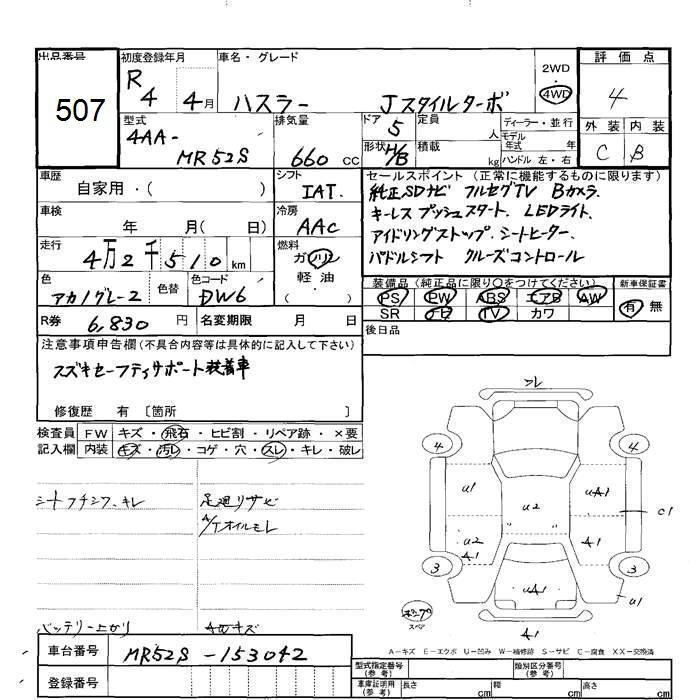 出品番号
507
初度登録年月
R 4 4月
車名・グレード
ハスラー Jスタイルターボ
2WD・4WD
評価点
4
外装 内装
C B
型式
4AA-
MR52S
排気量
660 cc
ドア 5
形状 H/B
定員 人
積載 kg
ディーラー・並行
モデル年式 年
ハンドル 左・右
車歴
自家用・( )
シフト
IAT
車検
年 月( 日)
冷房
AAC
走行
4万2千510 km
燃料
ガソリン
軽油
色
アカ/グレー2
色替
色コード
DW6
R券 6,830 円
名変期限 月 日
セールスポイント(正常に機能するものに限ります)
純正SDナビ フルセグTV Bカメラ、
キーレス プッシュスタート、LEDライト、
アイドリングストップ、シートヒーター、
パドルシフト クルーズコントロール
装備品(純正品に限り○をつけてください)
PS PW ABS エアB AW
SR ナビ TV カワ
新車保証書
有 無
後日品
注意事項申告欄(不具合内容等は具体的に記入して下さい)
スズキセーフティサポート装着車
修復歴 有 〔箇所 〕
検査員記入欄
FW キズ・飛石・ヒビ割・リペア跡・×要
内装 キズ・汚レ・コゲ・穴・スレ・キレ・破レ
シートフチシワ、キレ
足廻リサビ
A/Tオイルモレ
バッテリー上がり
4W キズ
フレ
4 4
U1 UA1
U2
U2 A1 A1
C1
3 3
UA1
U1
A1
スペア
A-キズ E-エクボ U-凹み W-補修跡 S-サビ C-腐食 XX-交換済
車台番号 MR52S-153042
登録番号
型式指定番号(参考)
類別区分番号(参考)
車庫証明用(参考) 長さ cm 幅 cm 高さ cm